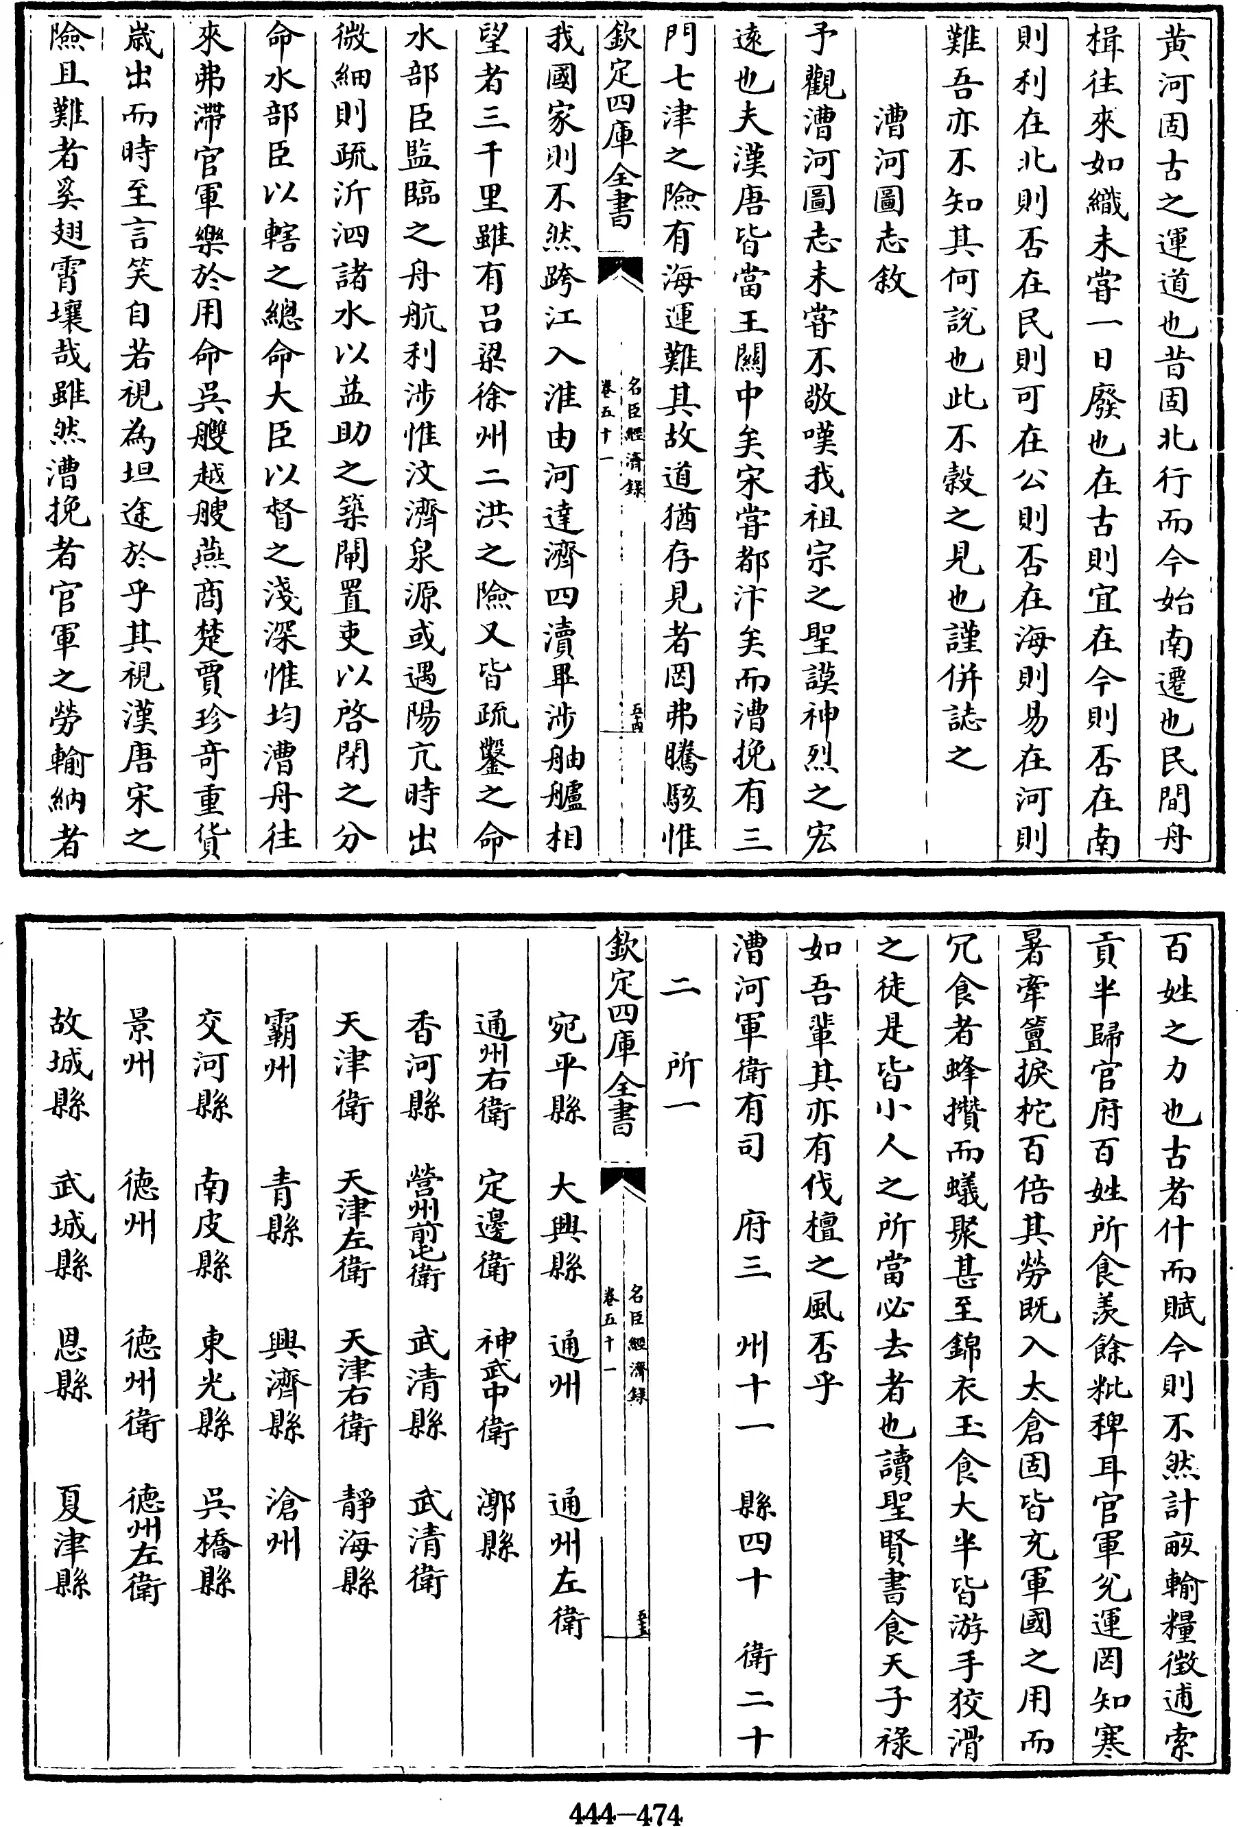 黄河固古之運道也昔固北行而今始南遷也民間舟
楫往來如織未甞一日廢也在古則宜在今則否在南
則利在北則否在民則可在公則否在海則易在河則
難吾亦不知其何說也此不穀之見也謹併誌之
漕河圖志敘
予觀漕河圖志未甞不敬嘆我祖宗之聖謨神烈之宏
遠也夫漢唐皆當王關中矣宋甞都汴矣而漕挽有三
門七津之險有海運難其故道猶存見者罔弗騰駭惟
欽定四庫全書
名臣經濟録
卷五十一
五十四
我國家則不然跨江入淮由河達濟四瀆畢涉舳艫相
望者三千里雖有呂梁徐州二洪之險又皆疏鑿之命
水部臣監臨之舟航利涉惟汶濟泉源或遇陽亢時出
微細則疏沂泗諸水以益助之築閘置吏以啓閉之分
命水部臣以轄之總命大臣以督之淺深惟均漕舟往
來弗滯官軍樂於用命吳艘越艘燕商楚賈珍奇重貨
歲出而時至言笑自若視為坦途於乎其視漢唐宋之
險且難者奚翅霄壤哉雖然漕挽者官軍之勞輸納者
百姓之力也古者什而賦今則不然計畝輸糧徵逋索
貢半歸官府百姓所食羨餘粃稗耳官軍兌運罔知寒
暑牽簹捩柁百倍其勞既入太倉固皆充軍國之用而
冗食者蜂攢而蟻聚甚至錦衣玉食大半皆游手狡滑
之徒是皆小人之所當必去者也讀聖賢書食天子祿
如吾輩其亦有伐檀之風否乎
漕河軍衛有司 府三 州十一 縣四十 衛二十
二 所一
欽定四庫全書
名臣經濟録
卷五十一
五十五
宛平縣 大興縣 通州 通州左衛
通州右衛 定邊衛 神武中衛 漷縣
香河縣 營州前屯衛 武清縣 武清衛
天津衛 天津左衛 天津右衛 靜海縣
霸州 青縣 興濟縣 滄州
交河縣 南皮縣 東光縣 吳橋縣
景州 德州 德州衛 德州左衛
故城縣 武城縣 恩縣 夏津縣
444-474